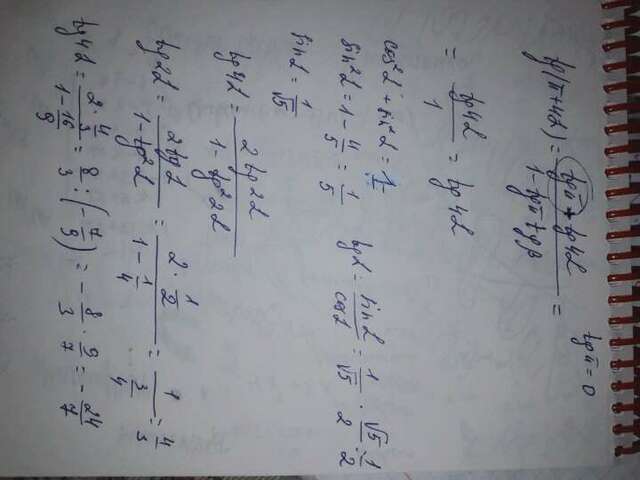 tg(π+4α) = (tgπ + tg4α)/(1 - tgπ tgβ) =
tgπ = 0
= tg4α/1 = tg4α
cos²α + sin²α = 1
sin²α = 1 - 4/5 = 1/5
sinα = 1/√5
tgα = sinα/cosα = 1/√5 · √5/2 = 1/2
tg4α = 2tg2α/(1 - tg²2α)
tg2α = 2tgα/(1 - tg²α) = (2 · 1/2)/(1 - 1/4) = 1/(3/4) = 4/3
tg4α = (2 · 4/3)/(1 - 16/9) = 8/3 : (-7/9) = -8/3 · 9/7 = -24/7